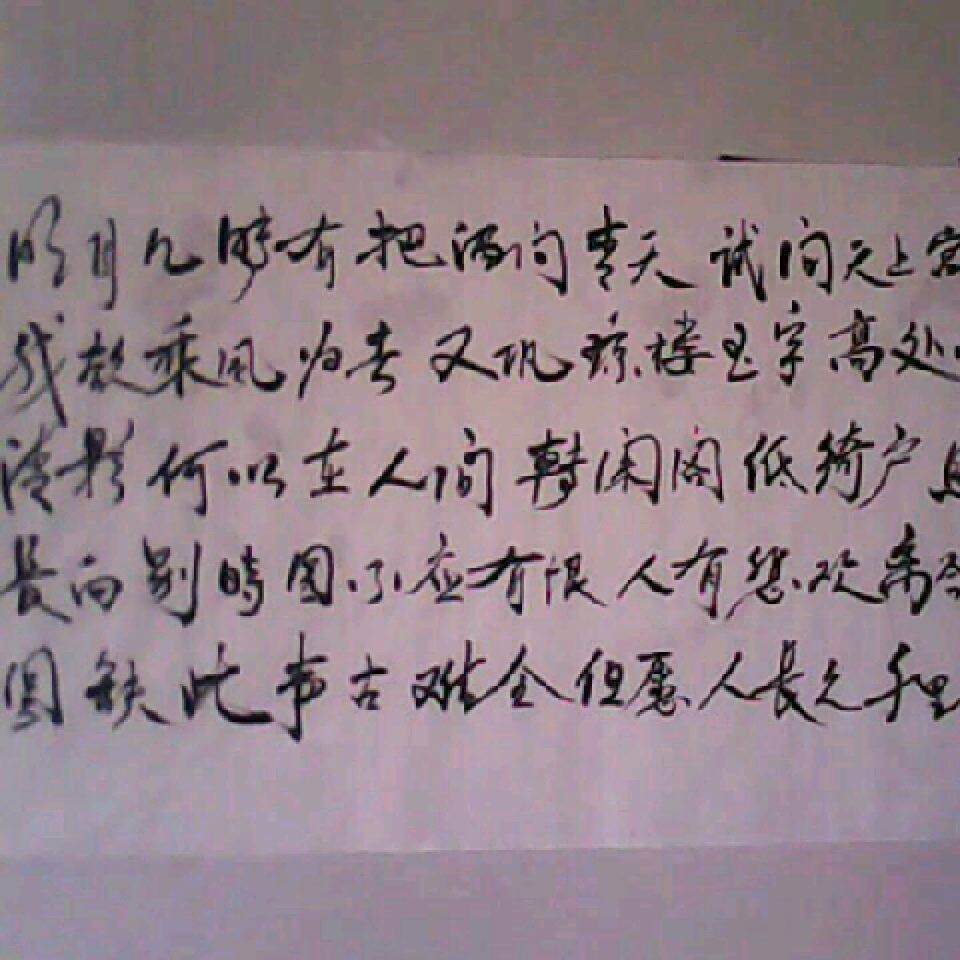 明月几時有把酒问青天 试问天上宫
我欲乘风归去 又恐琼楼玉宇高处
清影何以在人间 转阁阁低绮户
長向别時圆 不应有恨 人有悲欢离合
圆缺此事古难全但愿人長久千里